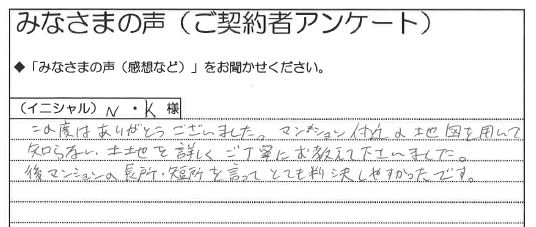 みなさまの声（ご契約者アンケート）
◆「みなさまの声（感想など）」をお聞かせください。
（イニシャル）N・K 様
この度はありがとうございました。マンション付近の地図を用いて
知らない土地を詳しくご丁寧にお教え下さいました。
後マンションの長所・短所を言ってとても判決しやすかったです。